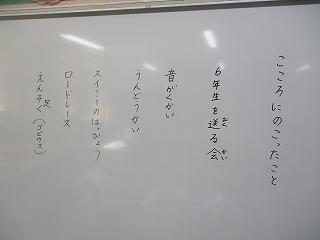 こころにのこったこと
6年生を送る会
おく
かい
音がくかい
うんどうかい
スイミーのはっぴょう
ロードレース
えんそく(ゴビウス)
足